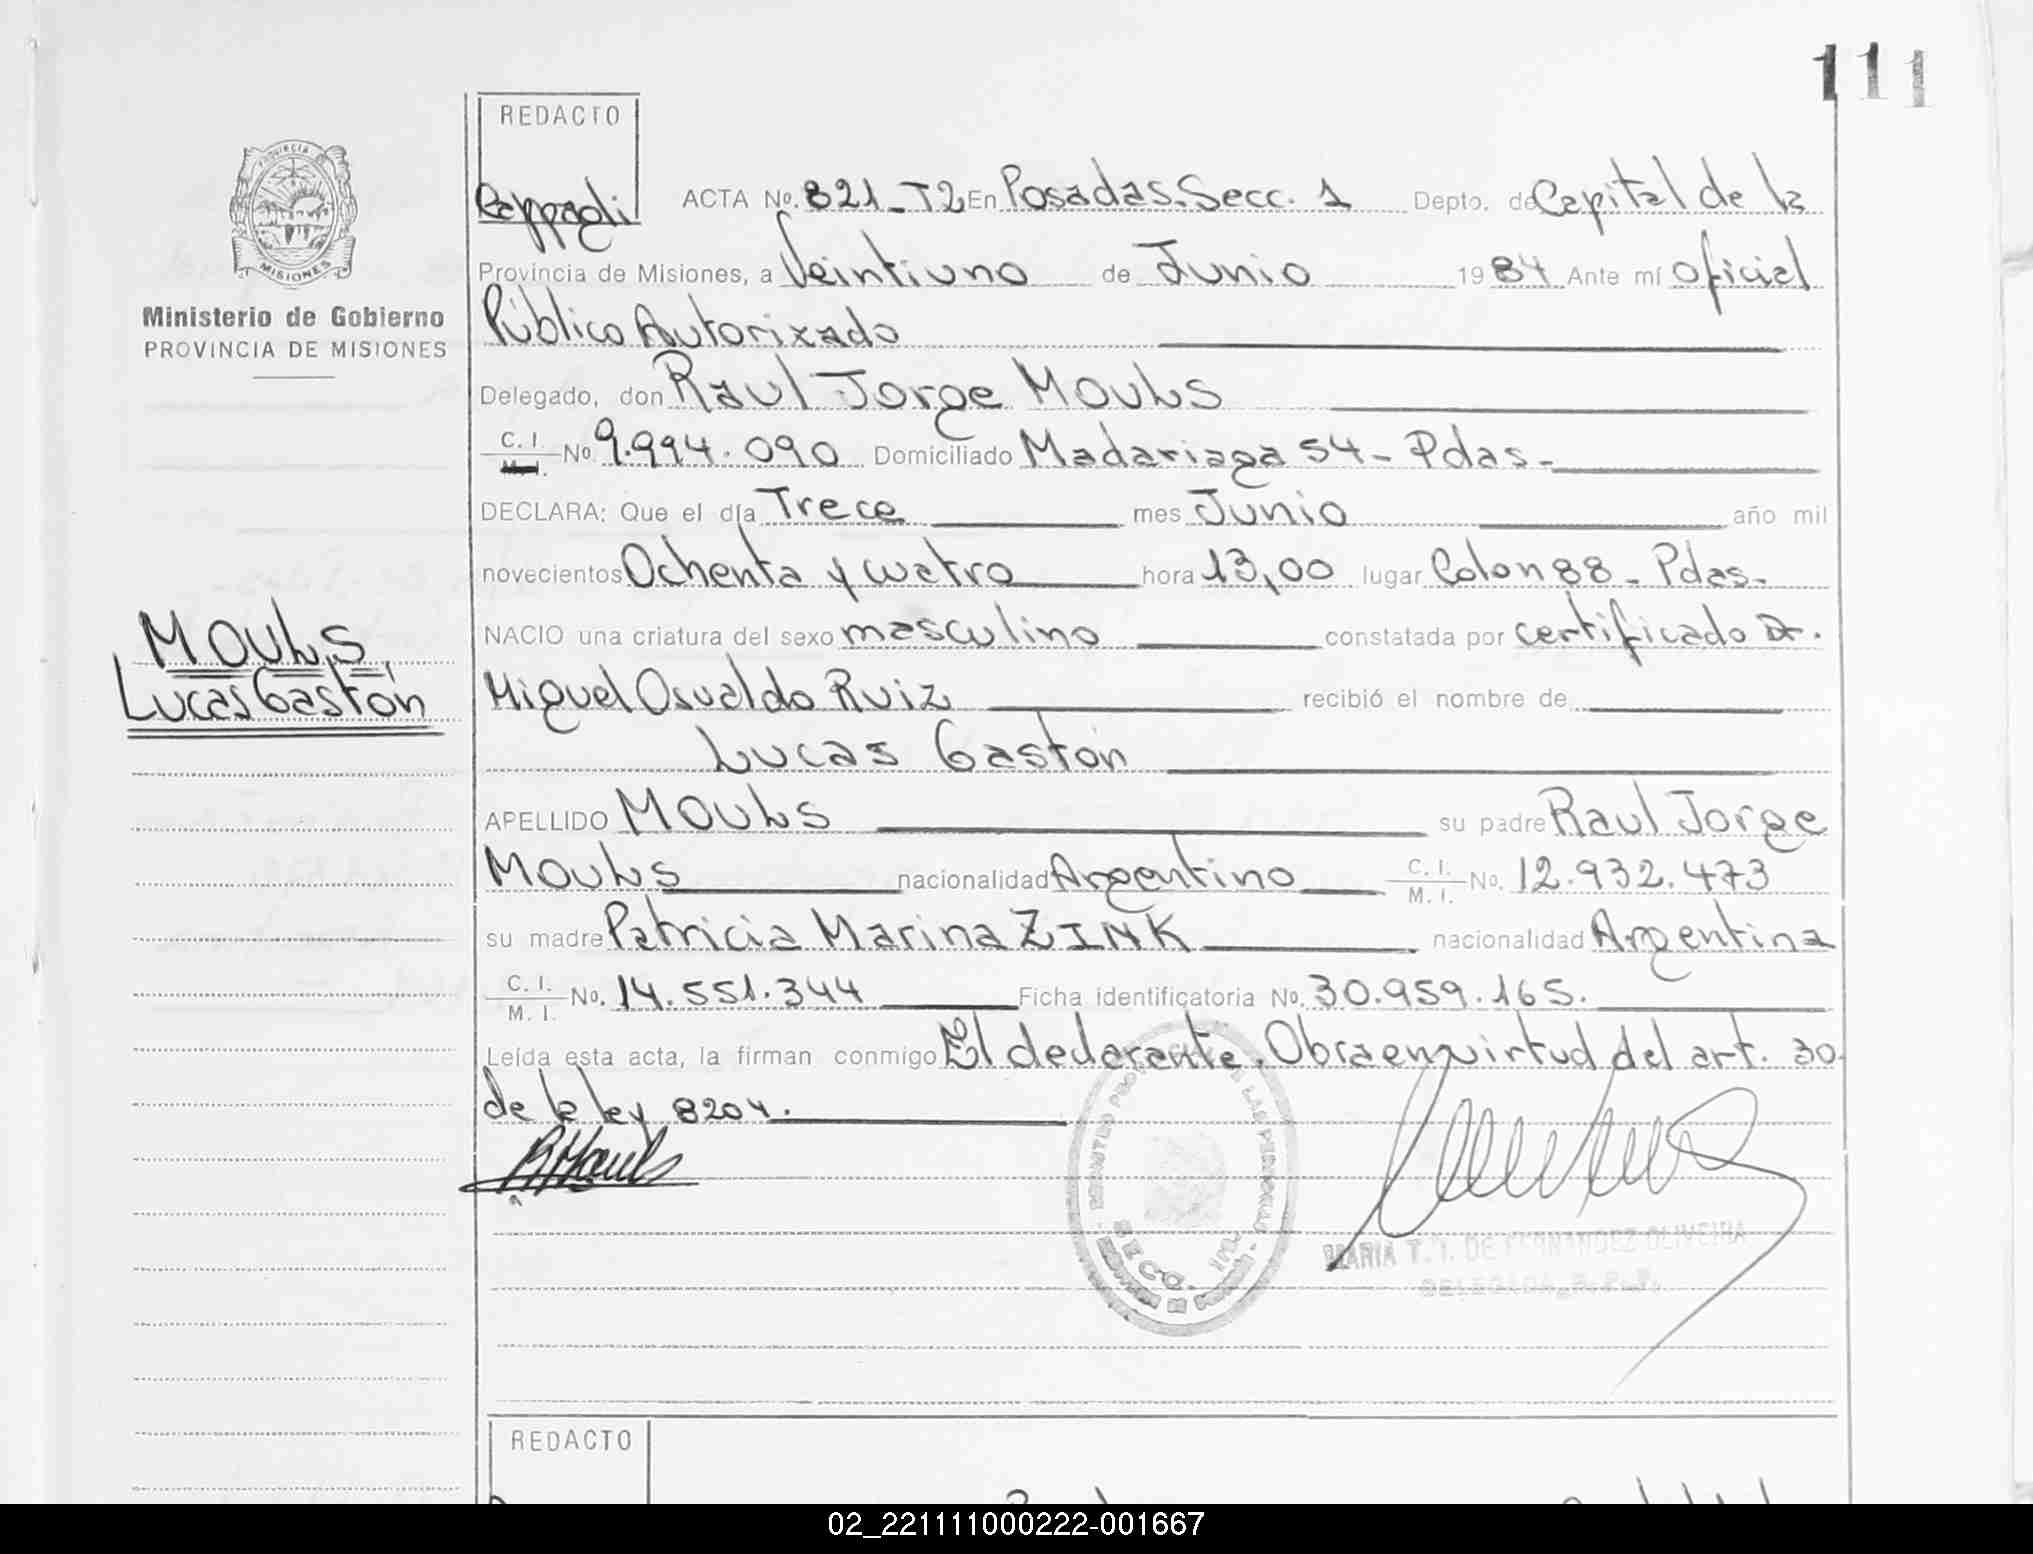 111
REDACTO
ACTA No. 821-T2 En Posadas. Secc. 1 Depto. de Capital de la
PROVINCIA
MISIONES
Provincia de Misiones, a Veintiuno de Junio 1984 Ante mí Oficial
Ministerio de Gobierno
PROVINCIA DE MISIONES
Público Autorizado
Delegado, don Raul Jorge MOULS
C. I. M. I. No. 9.994.090 Domiciliado Madariaga 54 - Pdas -
DECLARA: Que el día Trece mes Junio año mil
novecientos Ochenta y cuatro hora 13,00 lugar Colon 88 - Pdas -
MOULS,
Lucas Gastón
NACIO una criatura del sexo masculino constatada por certificado Dr.
Miguel Osvaldo Ruiz recibió el nombre de
Lucas Gastón
APELLIDO MOULS su padre Raul Jorge
MOULS nacionalidad Argentino C. I. M. I. No. 12.932.473
su madre Patricia Marina ZINK nacionalidad Argentina
C. I. M. I. No. 14.551.344 Ficha identificatoria No. 30.959.165.
Leída esta acta, la firman conmigo El declarante. Obra en virtud del art. 30
de la ley 8204.
MARIA T. DE FERNANDEZ OLIVEIRA
DELEGADA R.P.P.
REDACTO
02_221111000222-001667